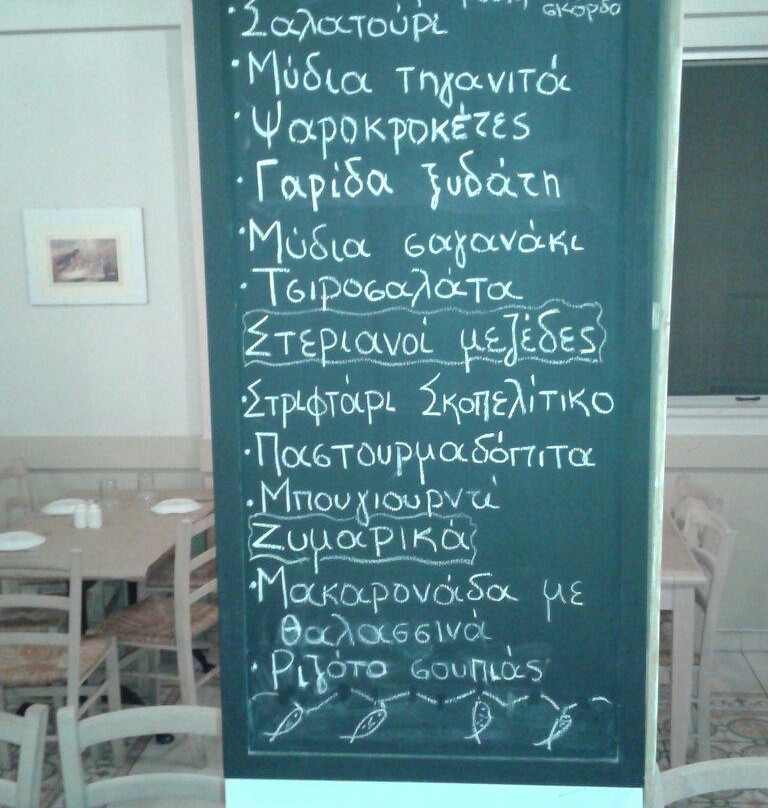 σκόρδο
· Σαλατούρι
· Μύδια τηγανιτά
· Ψαροκροκέτες
· Γαρίδα ξυδάτη
· Μύδια σαγανάκι
· Τσιροσαλάτα
Στεριανοί μεζέδες
· Στριφτάρι Σκοπελίτικο
· Παστουρμαδόπιτα
· Μπουγιουρντί
Ζυμαρικά
· Μακαρονάδα με
θαλασσινά
· Ριζότο σουπιάς